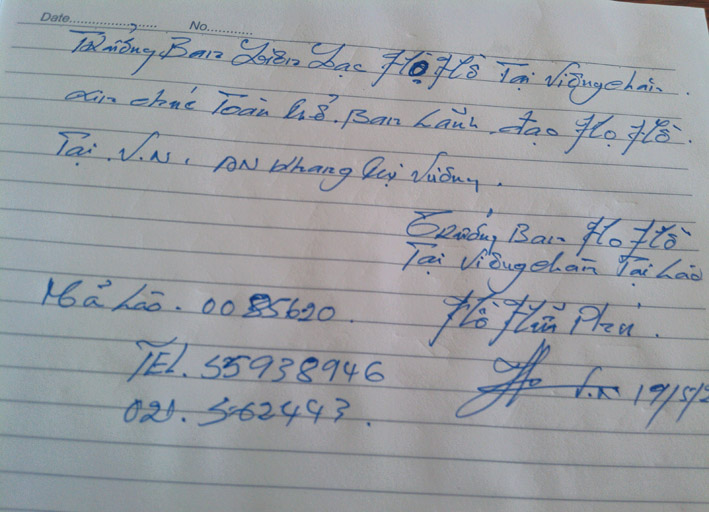 Date.................... No............
Trưởng Ban Liên Lạc Họ Hồ Tại Viêng chăn.
xin chúc Toàn thể. Ban Lãnh đạo Họ Hồ.
Tại. V.N. AN Khang Thịnh Vượng.
Trưởng Ban Họ Hồ
Tại Viêng chăn Tại Lào
Mã Lào. 0085620.
Hồ Hữu Phú.
TEL. 55938946
V.N 19/5/2
021. 562443.